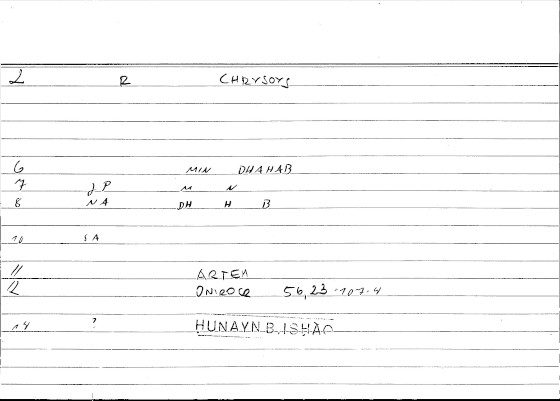 2 R CHRYSOYS
6 MIN DHAHAB
7 J P M N
8 N A DH H B
10 S A
11 ARTEM
12 ONIROCR 56,23-107.4
14 ? HUNAYN B. ISHAQ